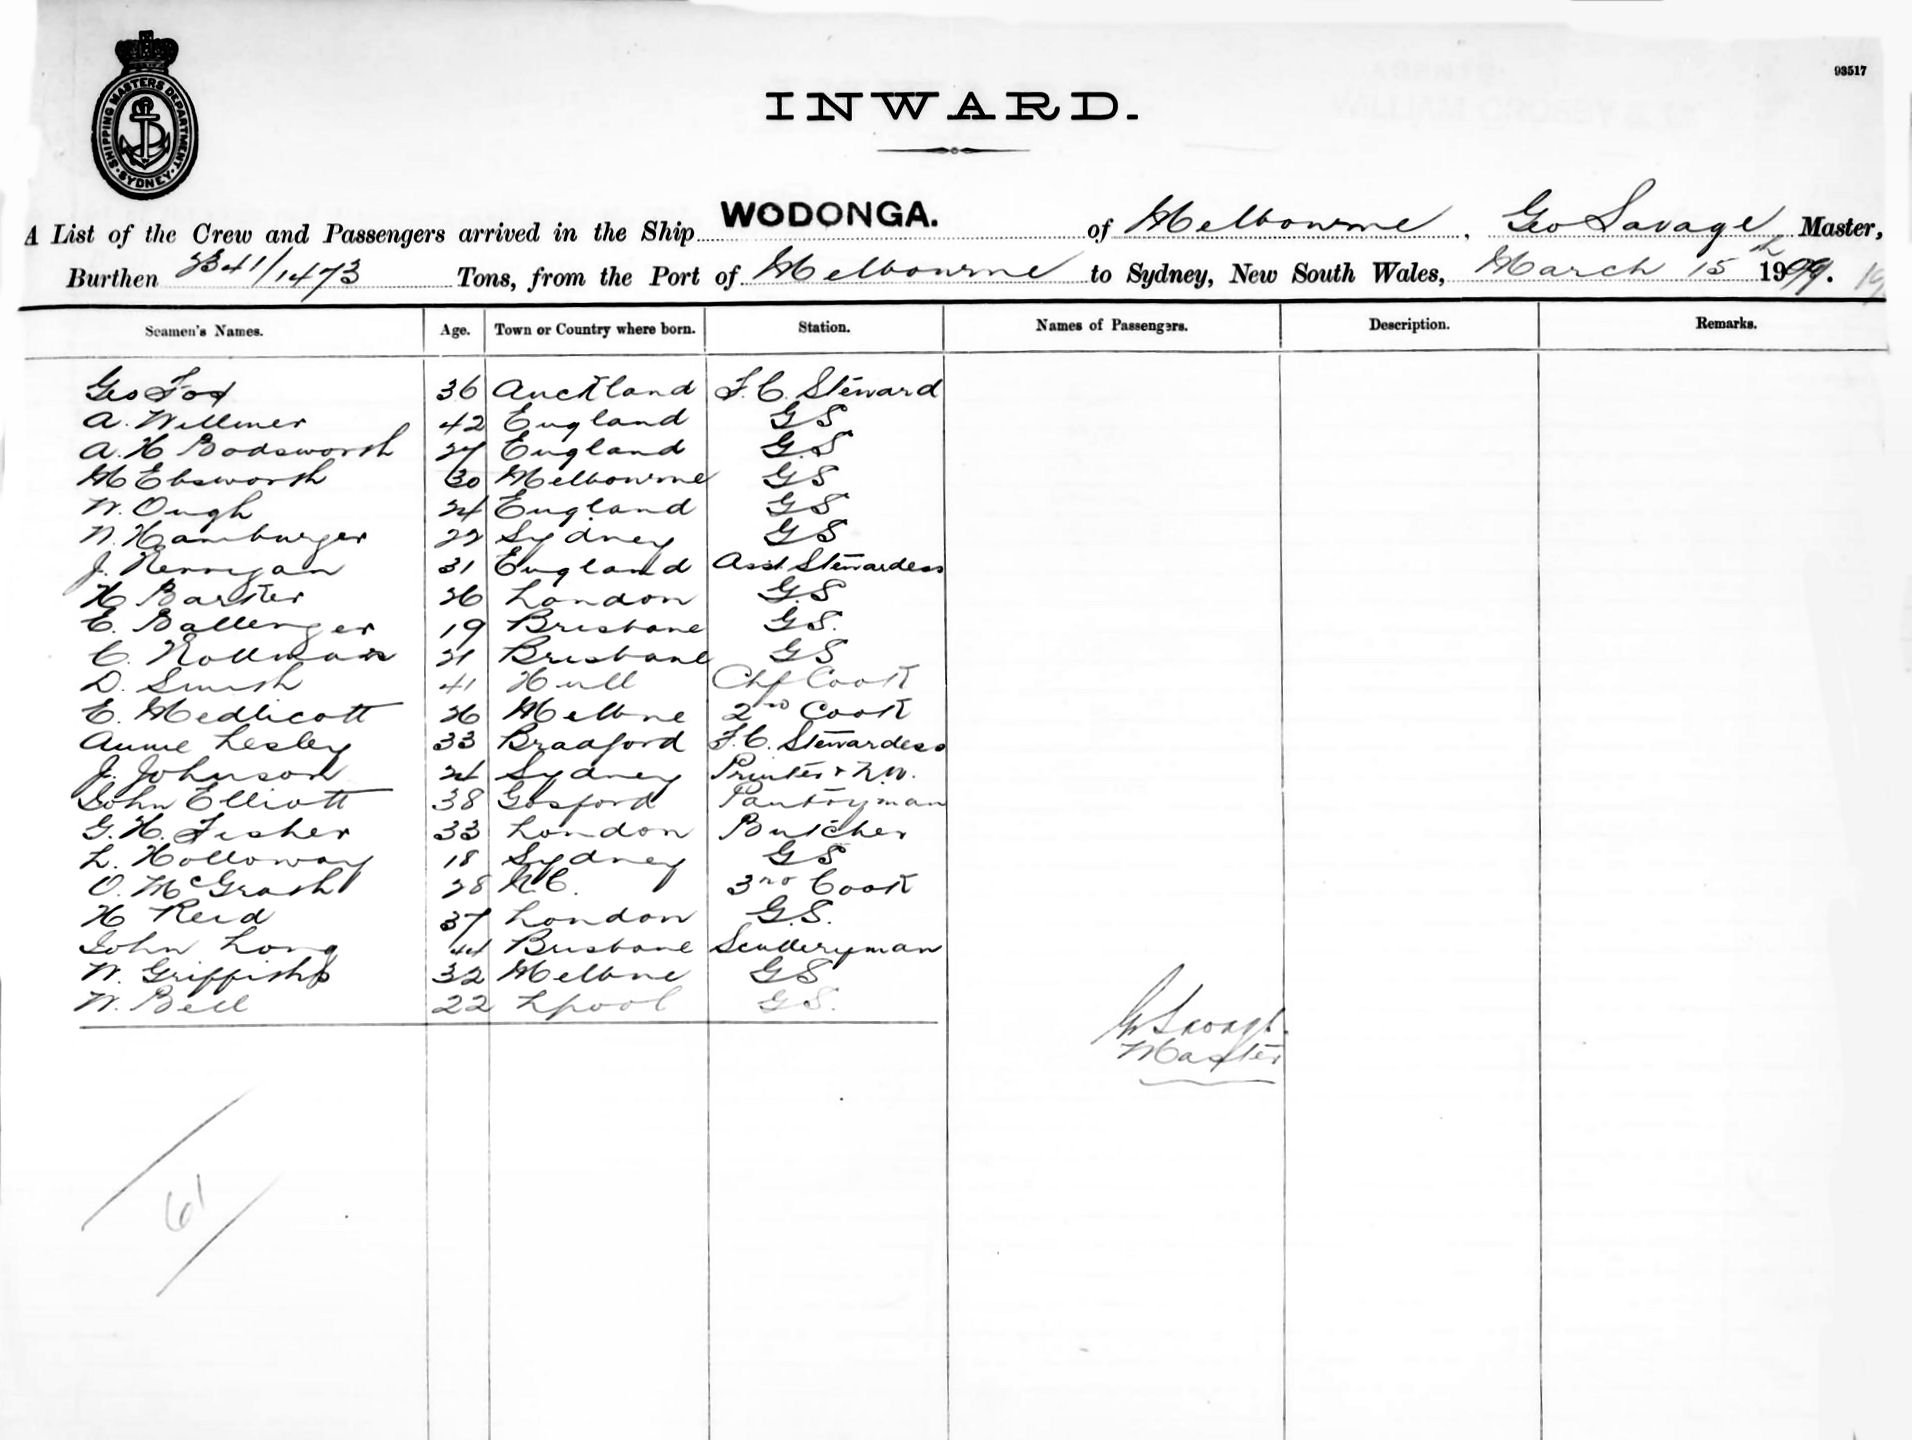 SHIPPING MASTERS DEPARTMENT
SYDNEY
93517
INWARD.
A List of the Crew and Passengers arrived in the Ship WODONGA. of Melbourne, Geo Savage Master,
Burthen 2341/1473 Tons, from the Port of Melbourne to Sydney, New South Wales, March 15th 1999.
Seamen's Names. Age. Town or Country where born. Station. Names of Passengers. Description. Remarks.
Geo Fox 36 Auckland F.C. Steward
A. Willmer 42 England GS
A. H Bodsworth 27 England G.S
M Ebsworth 30 Melbourne GS
W. Ough 24 England GS
N. Hamburger 22 Sydney GS
J. Kerrigan 31 England Asst Stewardess
H Barker 26 London G.S
E. Ballenger 19 Brisbane GS.
C. 21 Brisbane GS
D. Smith 41 Hull Chf Cook
E. Medlicott 26 Melbne 2nd Cook
Annie Lesley 33 Bradford F.C. Stewardess
J. Johnson 24 Sydney Printer + N.W.
John Elliott 38 Gosford Pantryman
G. H. Fisher 33 London Butcher
L. Holloway 18 Sydney GS
O. McGrath 28 N.C. 3rd Cook
H Reid 37 London G.S.
John Long 44 Brisbane Sculleryman
W. Griffiths 32 Melbne GS
W. Bell 22 Lpool GS.
G Savage.
Master
61